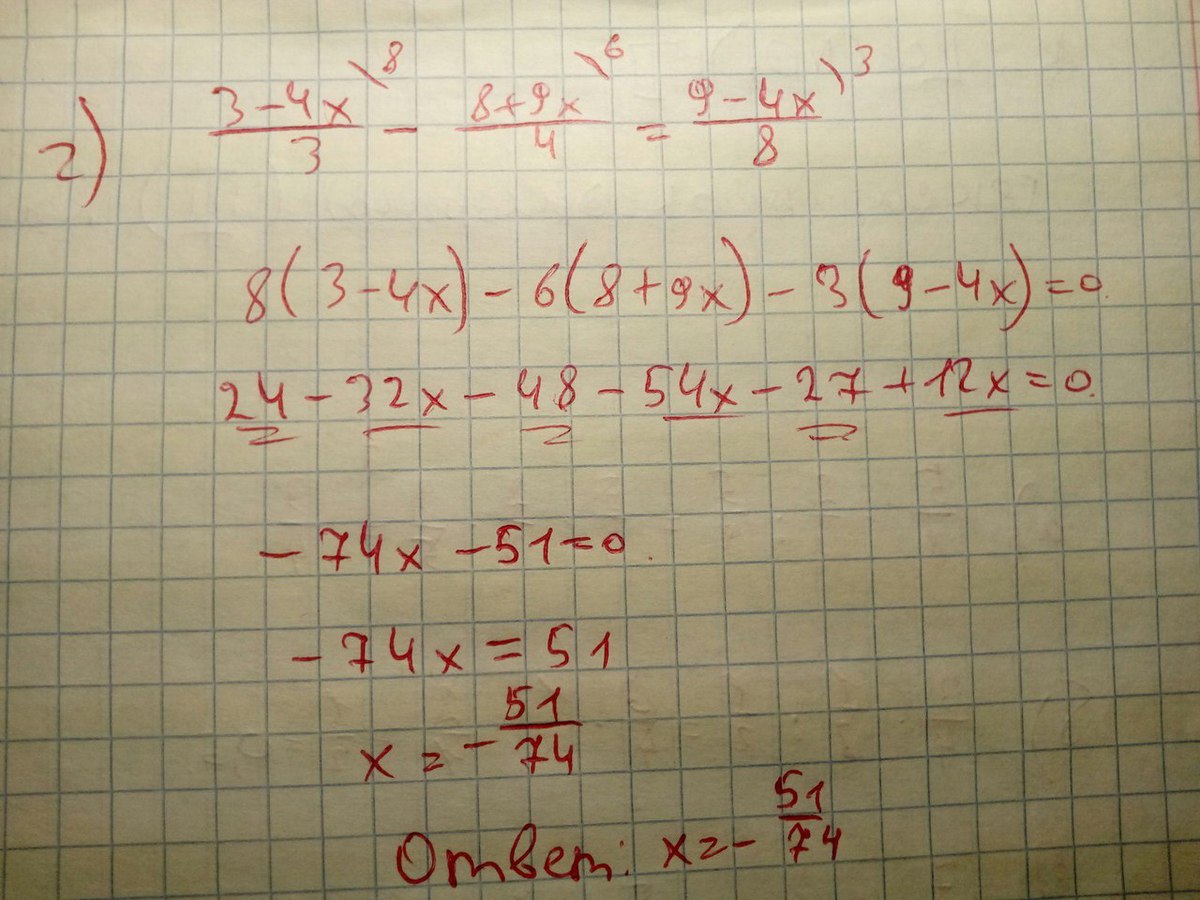 2) \frac{3-4x}{3}^{\8} - \frac{8+9x}{4}^{\6} = \frac{9-4x}{8}^{\3}
8(3-4x)-6(8+9x)-3(9-4x)=0.
24-32x-48-54x-27+12x=0.
-74x-51=0.
-74x=51
x=-\frac{51}{74}
Ответ: x=-\frac{51}{74}